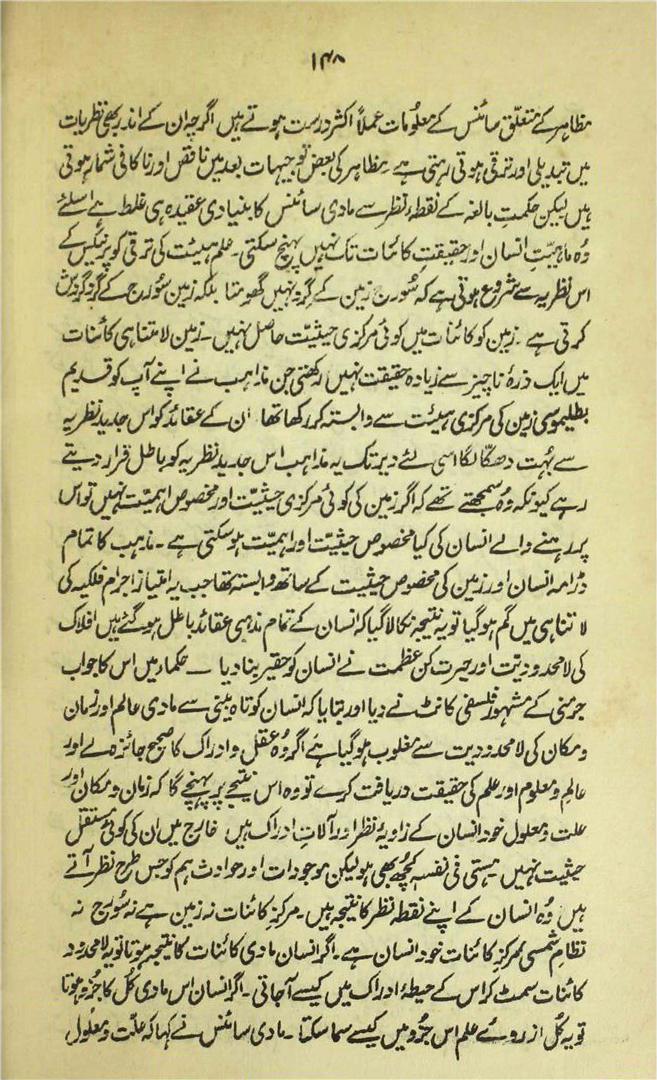 ۱۴۸
مظاہر کے متعلق سائنس کے معلومات عملاً اکثر درست ہوتے ہیں اگرچہ ان کے اندر بھی نظریات
میں تبدیلی اور ترقی ہوتی رہتی ہے۔ مظاہر کی بعض توجیہات بعد میں ناقص اور ناکافی شمار ہوتی
ہیں لیکن حکمتِ بالغہ کے نقطۂ نظر سے مادی سائنس کا بنیادی عقیدہ ہی غلط ہے اسلئے
وہ ماہیتِ انسان اور حقیقتِ کائنات تک نہیں پہنچ سکتی۔ علم ہیئت کی ترقی کوپرنیکس کے
اس نظریہ سے شروع ہوتی ہے کہ سورج زمین کے گرد نہیں گھومتا بلکہ زمین سورج کے گرد گردش
کرتی ہے۔ زمین کو کائنات میں کوئی مرکزی حیثیت حاصل نہیں۔ زمین لا متناہی کائنات
میں ایک ذرۂ ناچیز سے زیادہ حقیقت نہیں رکھتی جن مذاہب نے اپنے آپ کو قدیم
بطلیموسی زمین کی مرکزی ہیئت سے وابستہ کر رکھا تھا ان کے عقائد کو اس جدید نظریہ
سے بہت دھکّا لگا اسی لئے دیر تک یہ مذاہب اس جدید نظریہ کو باطل قرار دیتے
رہے کیونکہ وہ سمجھتے تھے کہ اگر زمین کی کوئی مرکزی حیثیت اور مخصوص اہمیت نہیں تو اس
پر رہنے والے انسان کی کیا مخصوص حیثیت اور اہمیت ہو سکتی ہے۔ مذہب کا تمام
ڈرامہ انسان اور زمین کی مخصوص حیثیت کے ساتھ وابستہ تھا جب یہ امتیاز اجرام فلکیہ کی
لا تناہی میں گم ہو گیا تو یہ نتیجہ نکالا گیا کہ انسان کے تمام مذہبی عقائد باطل ہو گئے ہیں افلاک
کی لا محدودیت اور حیرت کن عظمت نے انسان کو حقیر بنا دیا ۔ حکماء میں اس کا جواب
جرمنی کے مشہور فلسفی کانٹ نے دیا اور بتایا کہ انسان کوتاہ بینی سے مادی عالم اور زمان
و مکان کی لا محدودیت سے مغلوب ہو گیا ہے اگر وہ عقل و ادراک کا صحیح جائزہ لے اور
عالم و معلوم اور علم کی حقیقت دریافت کرے تو وہ اس نتیجے پر پہنچے گا کہ زمان و مکان اور
علت و معلول خود انسان کے زاویۂ نظر اور آلاتِ ادراک ہیں خارج میں ان کی کوئی مستقل
حیثیت نہیں ہستی فی نفسہٖ کچھ بھی ہو لیکن موجودات اور حوادث ہم کو جس طرح نظر آتے
ہیں وہ انسان کے اپنے نقطہ نظر کا نتیجہ ہیں۔ مرکزِ کائنات نہ زمین ہے نہ سورج نہ
نظامِ شمسی مرکزِ کائنات خود انسان ہے۔ اگر انسان مادی کائنات کا نتیجہ ہوتا تو یہ لا محدود
کائنات سمٹ کر اس کے حیطۂ ادراک میں کیسے آجاتی۔ اگر انسان اس مادی کُل کا جُزو ہوتا
تو یہ کُل از روئے علم اس جُزو میں کیسے سما سکتا۔ مادی سائنس نے کہا کہ علّت و معلول